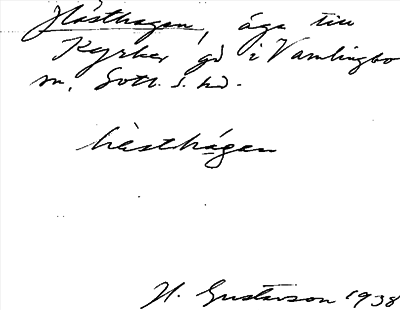 Hästhagen, äga till
Kyrkes gd i Vamlingbo
sn, Gotl. s. hd.
hèsthágen
H. Gustavson 1938